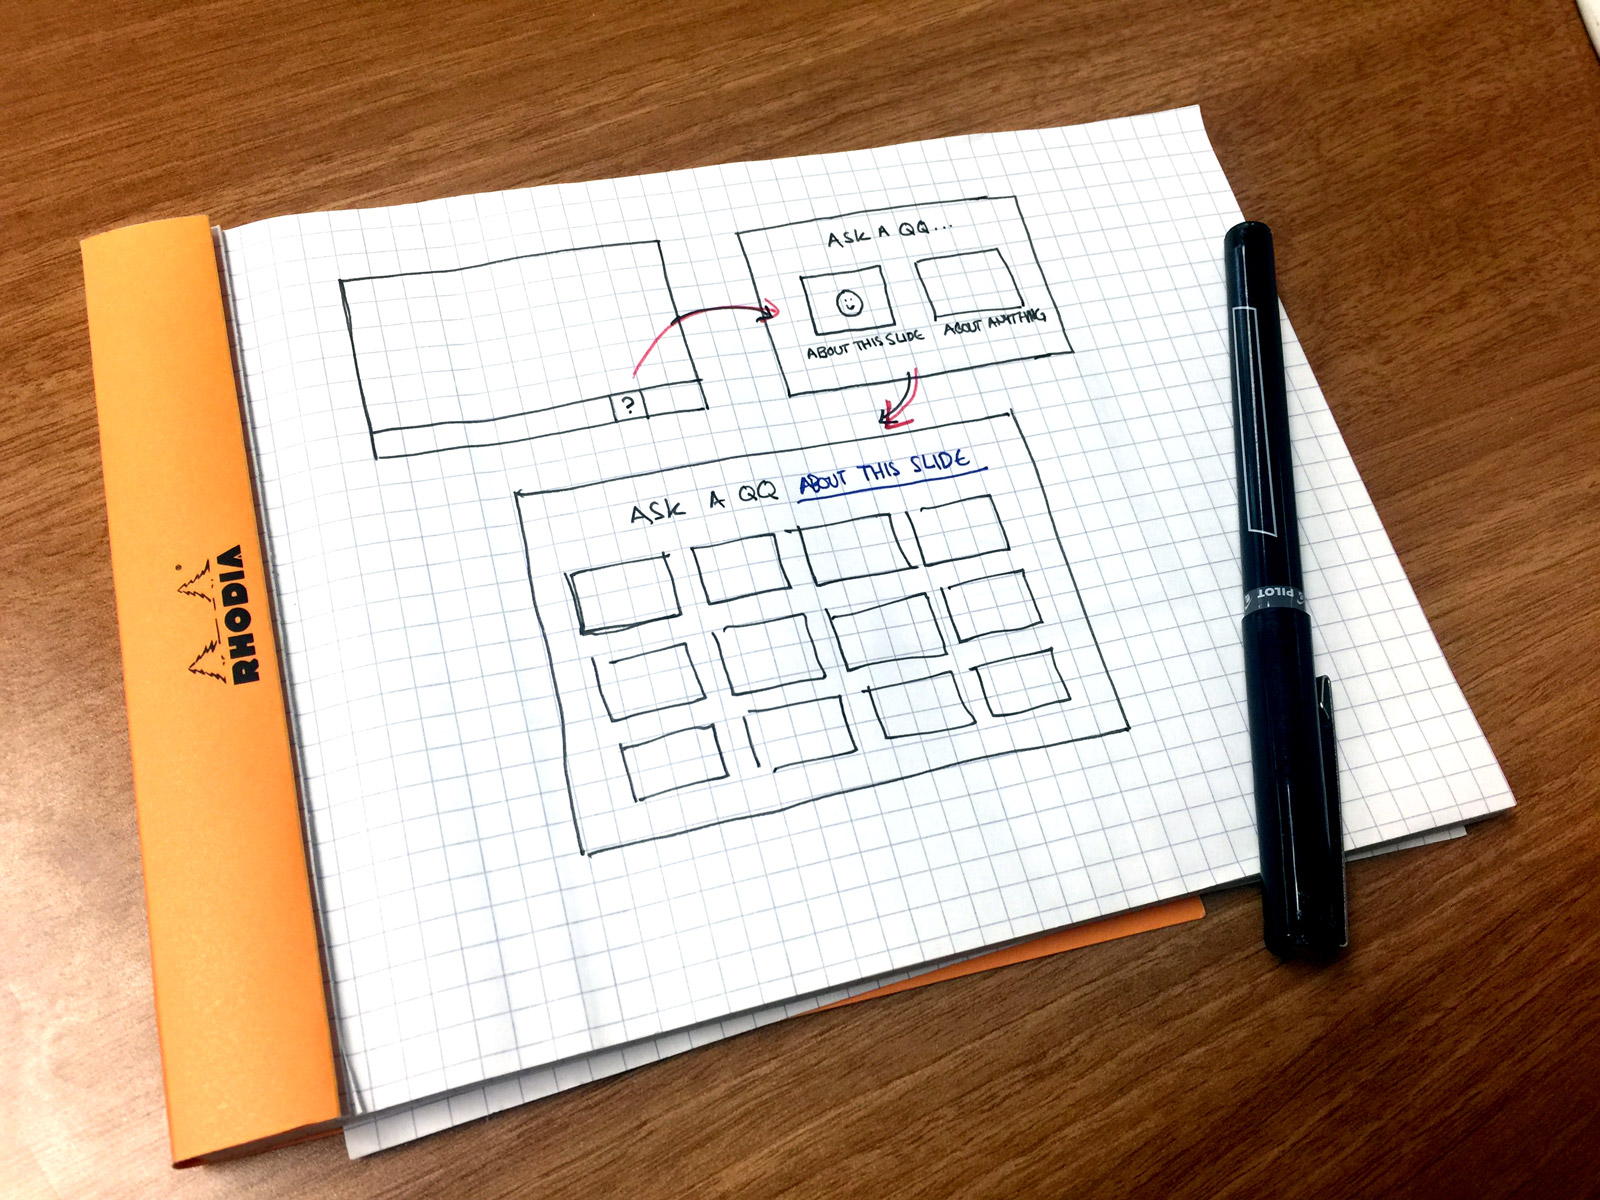 ?
ASK A QQ...
ABOUT THIS SLIDE
ABOUT ANYTHING
ASK A QQ ABOUT THIS SLIDE
RHODIA
PILOT